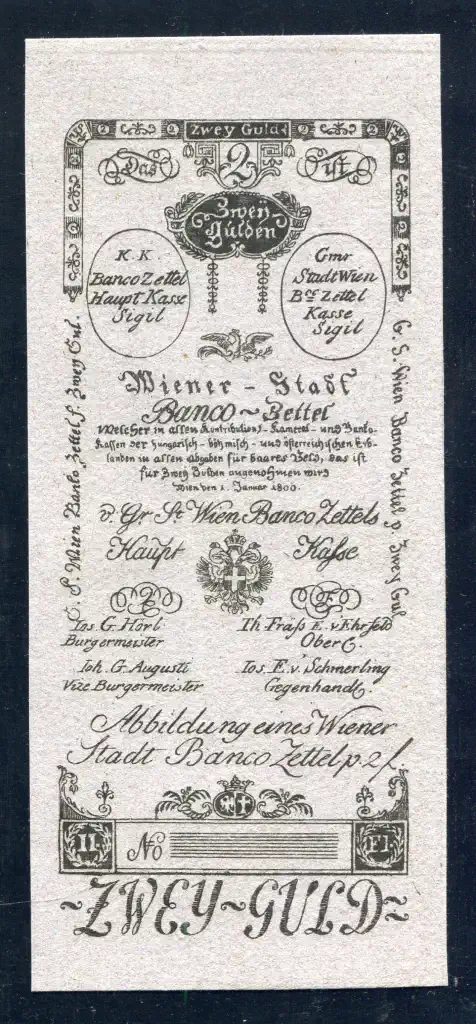 2 2 Zwey Guld 2 2
Das 2 ist
Zwey
Gulden
K. K.
Banco Zettel
Haupt Kasse
Sigil
Gmr
Stadt Wien
Bco Zettel
Kasse
Sigil
G. S. Wien Banko Zettel p. Zwey Gul.
G. S. Wien Banco Zettel p Zwey Gul
Wiener - Stadt
Banco ~ Zettel
welcher in allen Kontributions-, Kameral- und Banko-
Kassen der hungarisch- böhmisch- und österreichischen Erb-
landen in allen Abgaben für baares Geld, das ist
für Zwey Gulden angenohmen wird
Wien den 1. Januar 1800.
d. Gr St Wien Banco Zettels
Haupt Kasse
Jos. G. Hörl
Burgermeister
Th. Fräss E. v Ehrfeld
Ober C.
Joh. G. Augusti
Vize Burgermeister
Jos. E. v. Schmerling
Gegenhandl.
Abbildung eines Wiener
Stadt Banco Zettel p. 2 f.
II. No Fl.
~ZWEY~GULD~